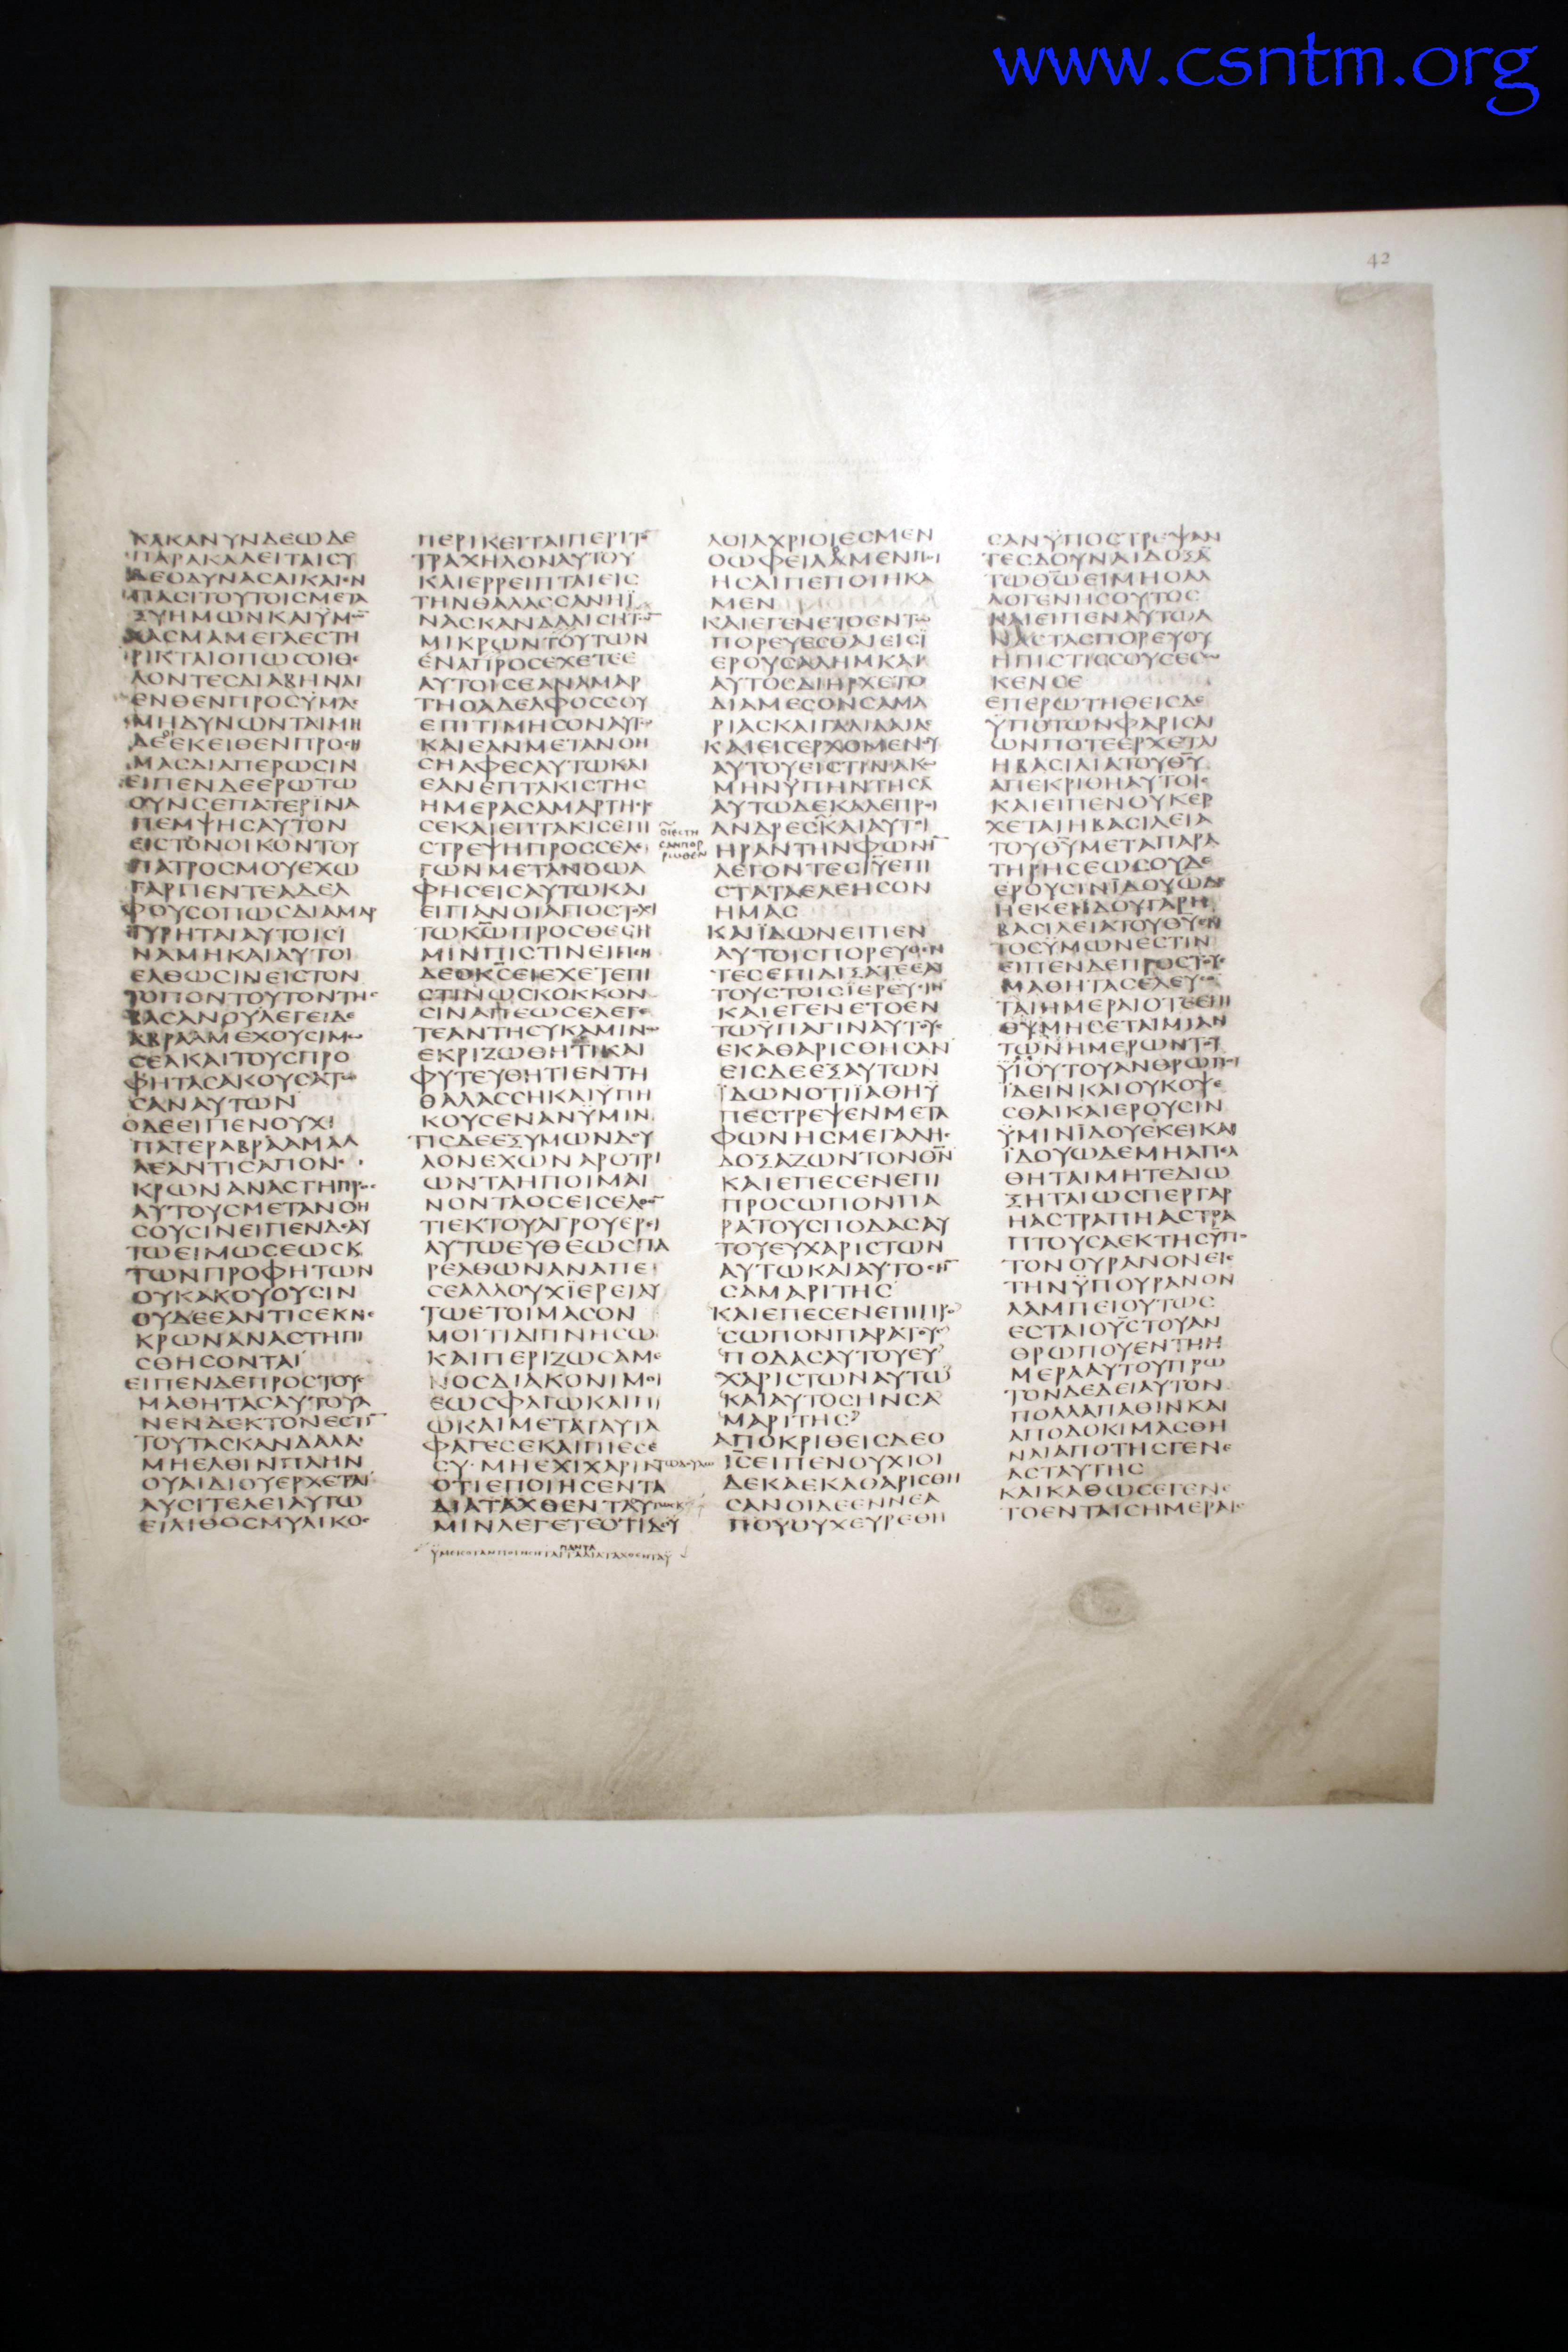 www.csntm.org
42
ΚΑΚΑΝΥΝΔΕΩΔΕ
ΠΑΡΑΚΑΛΕΙΤΑΙϹΥ
ΔΕΟΔΥΝΑϹΑΙΚΑΙΕΝ
ΠΑϹΙΤΟΥΤΟΙϹΜΕΤΑ
ΞΥΗΜΩΝΚΑΙΫΜΩ̅
ΧΑϹΜΑΜΕΓΑΕϹΤΗ
ΡΙΚΤΑΙΟΠΩϹΟΙΘΕ
ΛΟΝΤΕϹΔΙΑΒΗΝΑΙ
ΕΝΘΕΝΠΡΟϹΫΜΑϹ
ΜΗΔΥΝΩΝΤΑΙΜΗ
ΔΕΕΚΕΙΘΕΝΠΡΟϹΗ
ΜΑϹΔΙΑΠΕΡΩϹΙΝ
ΕΙΠΕΝΔΕΕΡΩΤΩ
ΟΥΝϹΕΠΑΤΕΡΪΝΑ
ΠΕΜΨΗϹΑΥΤΟΝ
ΕΙϹΤΟΝΟΙΚΟΝΤΟΥ
ΠΑΤΡΟϹΜΟΥΕΧΩ
ΓΑΡΠΕΝΤΕΑΔΕΛ
ΦΟΥϹΟΠΩϹΔΙΑΜΑΡ
ΤΥΡΗΤΑΙΑΥΤΟΙϹΪ
ΝΑΜΗΚΑΙΑΥΤΟΙ
ΕΛΘΩϹΙΝΕΙϹΤΟΝ
ΤΟΠΟΝΤΟΥΤΟΝΤΗϹ
ΒΑϹΑΝΟΥΛΕΓΕΙΔΕ
ΑΒΡΑΑΜΕΧΟΥϹΙΜΩ
ϹΕΑΚΑΙΤΟΥϹΠΡΟ
ΦΗΤΑϹΑΚΟΥϹΑΤΩ
ϹΑΝΑΥΤΩΝ
ΟΔΕΕΙΠΕΝΟΥΧΙ
ΠΑΤΕΡΑΒΡΑΑΜΑΛ
ΛΕΑΝΤΙϹΑΠΟΝΕ
ΚΡΩΝΑΝΑϹΤΗΠΡΟϹ
ΑΥΤΟΥϹΜΕΤΑΝΟΗ
ϹΟΥϹΙΝΕΙΠΕΝΔΕΑΥ
ΤΩΕΙΜΩϹΕΩϹΚ
ΤΩΝΠΡΟΦΗΤΩΝ
ΟΥΚΑΚΟΥΟΥϹΙΝ
ΟΥΔΕΕΑΝΤΙϹΕΚΝΕ
ΚΡΩΝΑΝΑϹΤΗΠΙ
ϹΘΗϹΟΝΤΑΙ
ΕΙΠΕΝΔΕΠΡΟϹΤΟΥϹ
ΜΑΘΗΤΑϹΑΥΤΟΥΑ
ΝΕΝΔΕΚΤΟΝΕϹΤΙ̅
ΤΟΥΤΑϹΚΑΝΔΑΛΑ
ΜΗΕΛΘΙΝΠΛΗΝ
ΟΥΑΙΔΙΟΥΕΡΧΕΤΑΙ
ΛΥϹΙΤΕΛΕΙΑΥΤΩ
ΕΙΛΙΘΟϹΜΥΛΙΚΟϹ
ΠΕΡΙΚΕΙΤΑΙΠΕΡΙΤΟ̅
ΤΡΑΧΗΛΟΝΑΥΤΟΥ
ΚΑΙΕΡΡΕΙΠΤΑΙΕΙϹ
ΤΗΝΘΑΛΑϹϹΑΝΗΪ
ΝΑϹΚΑΝΔΑΛΙϹΗΤΩ̅
ΜΙΚΡΩΝΤΟΥΤΩΝ
ΕΝΑΠΡΟϹΕΧΕΤΕΕ
ΑΥΤΟΙϹΕΑΝΑΜΑΡ
ΤΗΟΑΔΕΛΦΟϹϹΟΥ
ΕΠΙΤΙΜΗϹΟΝΑΥΤΩ
ΚΑΙΕΑΝΜΕΤΑΝΟΗ
ϹΗΑΦΕϹΑΥΤΩΚΑΙ
ΕΑΝΕΠΤΑΚΙϹΤΗϹ
ΗΜΕΡΑϹΑΜΑΡΤΗΕΙϹ
ϹΕΚΑΙΕΠΤΑΚΙϹΕΠΙ
ϹΤΡΕΨΗΠΡΟϹϹΕΛΕ
ΓΩΝΜΕΤΑΝΟΩΑ
ΦΗϹΕΙϹΑΥΤΩΚΑΙ
ΕΙΠΑΝΟΙΑΠΟϹΤΟΛΟΙ
ΤΩΚ̅Ω̅ΠΡΟϹΘΕϹΗ
ΜΙΝΠΙϹΤΙΝΕΙΠΕΝ
ΔΕΟΚ̅Ϲ̅ΕΙΕΧΕΤΕΠΙ
ϹΤΙΝΩϹΚΟΚΚΟΝ
ϹΙΝΑΠΕΩϹΕΛΕΓΕ
ΤΕΑΝΤΗϹΥΚΑΜΙΝΩ
ΕΚΡΙΖΩΘΗΤΙΚΑΙ
ΦΥΤΕΥΘΗΤΙΕΝΤΗ
ΘΑΛΑϹϹΗΚΑΙΥΠΗ
ΚΟΥϹΕΝΑΝΫΜΙΝ
ΤΙϹΔΕΕΞΥΜΩΝΔΟΥ
ΛΟΝΕΧΩΝΑΡΟΤΡΙ
ΩΝΤΑΗΠΟΙΜΑΙ
ΝΟΝΤΑΟϹΕΙϹΕΛΘΟ̅
ΤΙΕΚΤΟΥΑΓΡΟΥΕΡΕΙ
ΑΥΤΩΕΥΘΕΩϹΠΑ
ΡΕΛΘΩΝΑΝΑΠΕ
ϹΕΑΛΛΟΥΧΪΕΡΕΙΑΥ
ΤΩΕΤΟΙΜΑϹΟΝ
ΜΟΙΤΙΔΙΠΝΗϹΩ
ΚΑΙΠΕΡΙΖΩϹΑΜΕ
ΝΟϹΔΙΑΚΟΝΙΜΟΙ
ΕΩϹΦΑΓΩΚΑΙΠΙ
ΩΚΑΙΜΕΤΑΤΑΥΤΑ
ΦΑΓΕϹΕΚΑΙΠΙΕϹΕ
ϹΥΜΗΕΧΙΧΑΡΙΝΤΩΔΟΥΛΩ
ΟΤΙΕΠΟΙΗϹΕΝΤΑ
ΔΙΑΤΑΧΘΕΝΤΑ
ΜΙΝΛΕΓΕΤΕΟΤΙΔΟΥ
ΠΑΝΤΑ
ΫΜΕΙϹΟΤΑΝΠΟΙΗϹΗΤΑΙΤΑΔΙΑΤΑΧΘΕΝΤΑΫ
ΟΙΕϹΤΗ
ϹΑΝΠΟΡ
ΡΩΘΕΝ
ΛΟΙΑΧΡΙΟΙΕϹΜΕΝ
ΟΩΦΕΙΛΑΜΕΝΠΟΙ
ΗϹΑΙΠΕΠΟΙΗΚΑ
ΜΕΝ
ΚΑΙΕΓΕΝΕΤΟΕΝΤΩ
ΠΟΡΕΥΕϹΘΑΙΕΙϹΪ
ΕΡΟΥϹΑΛΗΜΚΑΙ
ΑΥΤΟϹΔΙΗΡΧΕΤΟ
ΔΙΑΜΕϹΟΝϹΑΜΑ
ΡΙΑϹΚΑΙΓΑΛΙΛΑΙΑϹ
ΚΑΙΕΙϹΕΡΧΟΜΕΝΟΥ
ΑΥΤΟΥΕΙϹΤΙΝΑΚΩ
ΜΗΝΫΠΗΝΤΗϹΑ̅
ΑΥΤΩΔΕΚΑΛΕΠΡΟΙ
ΑΝΔΡΕϹΚΑΙΑΥΤΟΙ
ΗΡΑΝΤΗΝΦΩΝΗ̅
ΛΕΓΟΝΤΕϹΙ̅Υ̅ΕΠΙ
ϹΤΑΤΑΕΛΕΗϹΟΝ
ΗΜΑϹ
ΚΑΙΪΔΩΝΕΙΠΕΝ
ΑΥΤΟΙϹΠΟΡΕΥΘΕΝ
ΤΕϹΕΠΙΔΙΞΑΤΕΕΑΥ
ΤΟΥϹΤΟΙϹΪΕΡΕΥϹΙΝ
ΚΑΙΕΓΕΝΕΤΟΕΝ
ΤΩΫΠΑΓΙΝΑΥΤΟΥϹ
ΕΚΑΘΑΡΙϹΘΗϹΑΝ
ΕΙϹΔΕΕΞΑΥΤΩΝ
ΪΔΩΝΟΤΙΪΑΘΗΫ
ΠΕϹΤΡΕΨΕΝΜΕΤΑ
ΦΩΝΗϹΜΕΓΑΛΗϹ
ΔΟΞΑΖΩΝΤΟΝΘ̅Ν̅
ΚΑΙΕΠΕϹΕΝΕΠΙ
ΠΡΟϹΩΠΟΝΠΑ
ΡΑΤΟΥϹΠΟΔΑϹΑΥ
ΤΟΥΕΥΧΑΡΙϹΤΩΝ
ΑΥΤΩΚΑΙΑΥΤΟϹΗ̅
ϹΑΜΑΡΙΤΗϹ
ΚΑΙΕΠΕϹΕΝΕΠΙΠΡΟ
ϹΩΠΟΝΠΑΡΑΤΟΥϹ
ΠΟΔΑϹΑΥΤΟΥΕΥ
ΧΑΡΙϹΤΩΝΑΥΤΩ
ΚΑΙΑΥΤΟϹΗΝϹΑ
ΜΑΡΙΤΗϹ
ΑΠΟΚΡΙΘΕΙϹΔΕΟ
Ι̅Ϲ̅ΕΙΠΕΝΟΥΧΙΟΙ
ΔΕΚΑΕΚΑΘΑΡΙϹΘΗ
ϹΑΝΟΙΔΕΕΝΝΕΑ
ΠΟΥΟΥΧΕΥΡΕΘΗ
ϹΑΝΫΠΟϹΤΡΕΨΑΝ
ΤΕϹΔΟΥΝΑΙΔΟΞΑ̅
ΤΩΘ̅Ω̅ΕΙΜΗΟΑΛ
ΛΟΓΕΝΗϹΟΥΤΟϹ
ΚΑΙΕΙΠΕΝΑΥΤΩΑ
ΝΑϹΤΑϹΠΟΡΕΥΟΥ
ΗΠΙϹΤΙϹϹΟΥϹΕϹΩ
ΚΕΝϹΕ
ΕΠΕΡΩΤΗΘΕΙϹΔΕ
ΫΠΟΤΩΝΦΑΡΙϹΑΙ
ΩΝΠΟΤΕΕΡΧΕΤΑΙ
ΗΒΑϹΙΛΙΑΤΟΥΘ̅Υ̅
ΑΠΕΚΡΙΘΗΑΥΤΟΙϹ
ΚΑΙΕΙΠΕΝΟΥΚΕΡ
ΧΕΤΑΙΗΒΑϹΙΛΕΙΑ
ΤΟΥΘ̅Υ̅ΜΕΤΑΠΑΡΑ
ΤΗΡΗϹΕΩϹΟΥΔΕ
ΕΡΟΥϹΙΝΪΔΟΥΩΔΕ
ΗΕΚΕΙΪΔΟΥΓΑΡΗ
ΒΑϹΙΛΕΙΑΤΟΥΘ̅Υ̅ΕΝ
ΤΟϹΫΜΩΝΕϹΤΙΝ
ΕΙΠΕΝΔΕΠΡΟϹΤΟΥϹ
ΜΑΘΗΤΑϹΕΛΕΥϹΟ̅
ΤΑΙΗΜΕΡΑΙΟΤΕΕΠΙ
ΘΥΜΗϹΕΤΑΙΜΙΑΝ
ΤΩΝΗΜΕΡΩΝΤΟΥ
ΫΙΟΥΤΟΥΑΝΘΡΩΠΟΥ
ΪΔΕΙΝΚΑΙΟΥΚΟΨΕ
ϹΘΑΙΚΑΙΕΡΟΥϹΙΝ
ΫΜΙΝΪΔΟΥΕΚΕΙΚΑΙ
ΪΔΟΥΩΔΕΜΗΑΠΕΛ
ΘΗΤΑΙΜΗΤΕΔΙΩ
ΞΗΤΑΙΩϹΠΕΡΓΑΡ
ΗΑϹΤΡΑΠΗΑϹΤΡΑ
ΠΤΟΥϹΑΕΚΤΗϹΫΠΟ
ΤΟΝΟΥΡΑΝΟΝΕΙϹ
ΤΗΝΫΠΟΥΡΑΝΟΝ
ΛΑΜΠΕΙΟΥΤΩϹ
ΕϹΤΑΙΟΥ̅Ϲ̅ΤΟΥΑΝ
ΘΡΩΠΟΥΕΝΤΗΗ
ΜΕΡΑΑΥΤΟΥΠΡΩ
ΤΟΝΔΕΔΕΙΑΥΤΟΝ
ΠΟΛΛΑΠΑΘΙΝΚΑΙ
ΑΠΟΔΟΚΙΜΑϹΘΗ
ΝΑΙΑΠΟΤΗϹΓΕΝΕ
ΑϹΤΑΥΤΗϹ
ΚΑΙΚΑΘΩϹΕΓΕΝΕ
ΤΟΕΝΤΑΙϹΗΜΕΡΑΙϹ